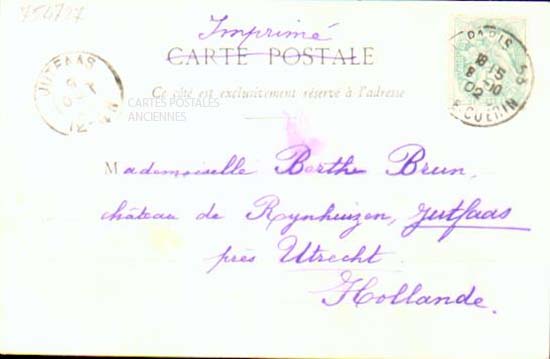 754727
Imprimé
CARTE POSTALE
Ce côté est exclusivement réservé à l'adresse
CARTES POSTALES
ANCIENNES
PARIS
18 15
8 10
02
JUTFAAS
Mademoiselle Berthe Brun,
château de Rynhuizen, Jutfaas
près Utrecht
Hollande.